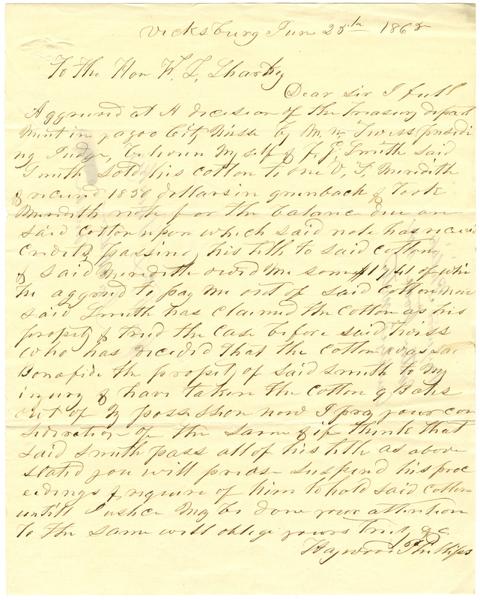 Vicksburg Jun 25th 1865
To the Hon W. L. Sharky
Dear Sir I full
Aggrived at A decision of the Treasury depart
Ment in yazoo City Miss by M. M. Twiss presidi
ng Judge, between My self & J. E. Smith Said
Smith Sold his cotton to one D. F. Meredith
& recived 1850 dollars in greenback & took
Meredith note for the balance due on
said cotton upon which said note has
credits passing his title to said cotton
& said Meredith owed Me some $1941 of
he aggred to pay Me out of said cotton
said Smith has claimed the cotton as his
property & tried the case before said
who has decided that the cotton was
Bonafide the property of said Smith to My
injury & have taken the cotton 9 Bales
out of My possession now I pray your con
sideration of the same & if think that
said Smith pass all of his title as above
stated you will please suspend his proc
eedings & require of him to hold said cotton
untill Justice May be done your attention
to the same will oblige yours truly &c
Haywood Phillips